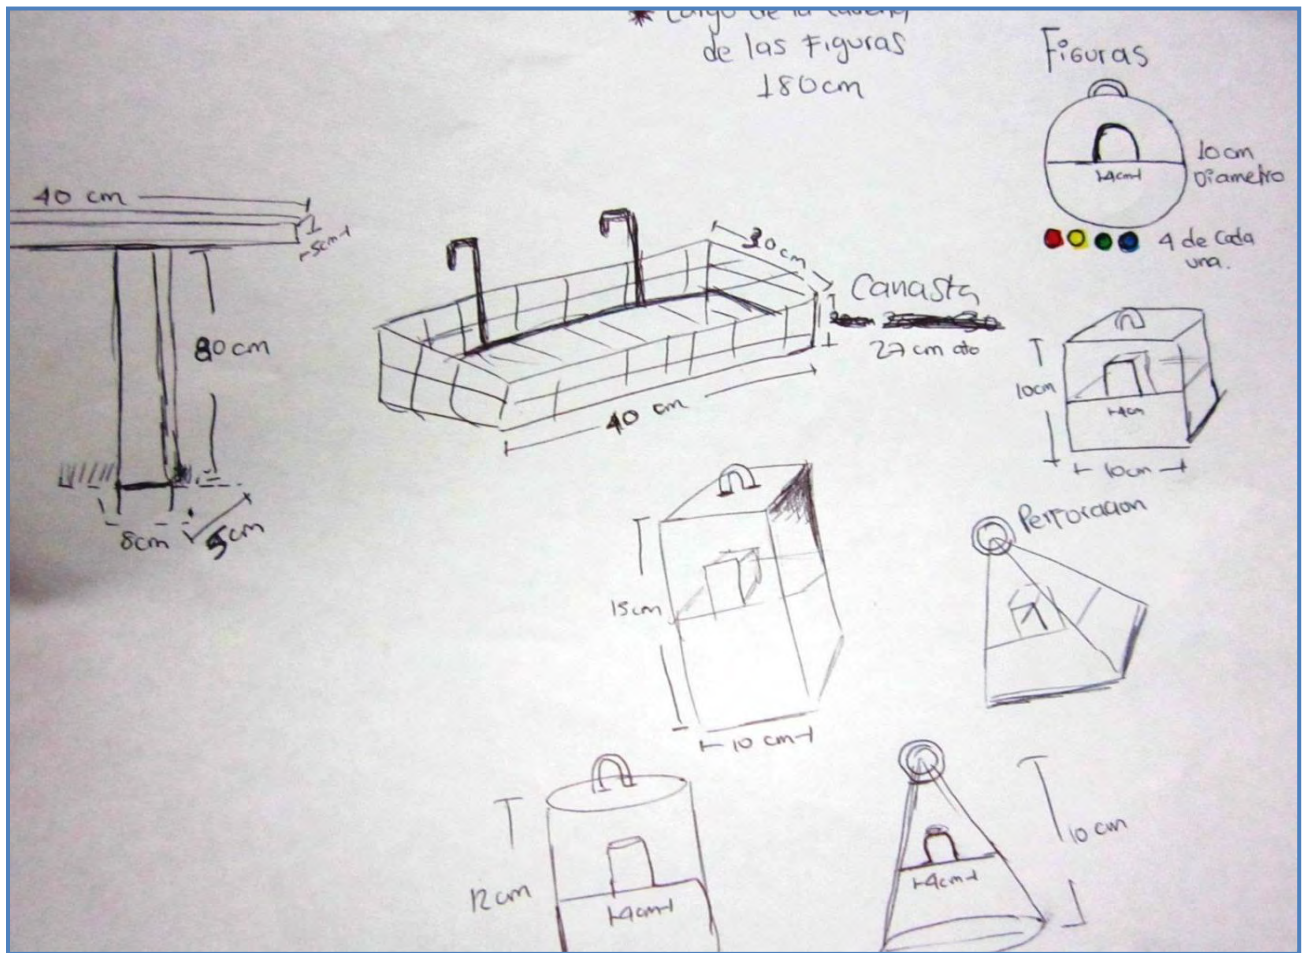 de las Figuras
180cm
Figuras
10cm
Diametro
4cm
4 de cada
una.
40 cm
5cm
80cm
8cm
5cm
30cm
Canasta
27 cm
40 cm
10cm
4cm
10cm
15cm
10 cm
Perforacion
12cm
4cm
10 cm
4cm